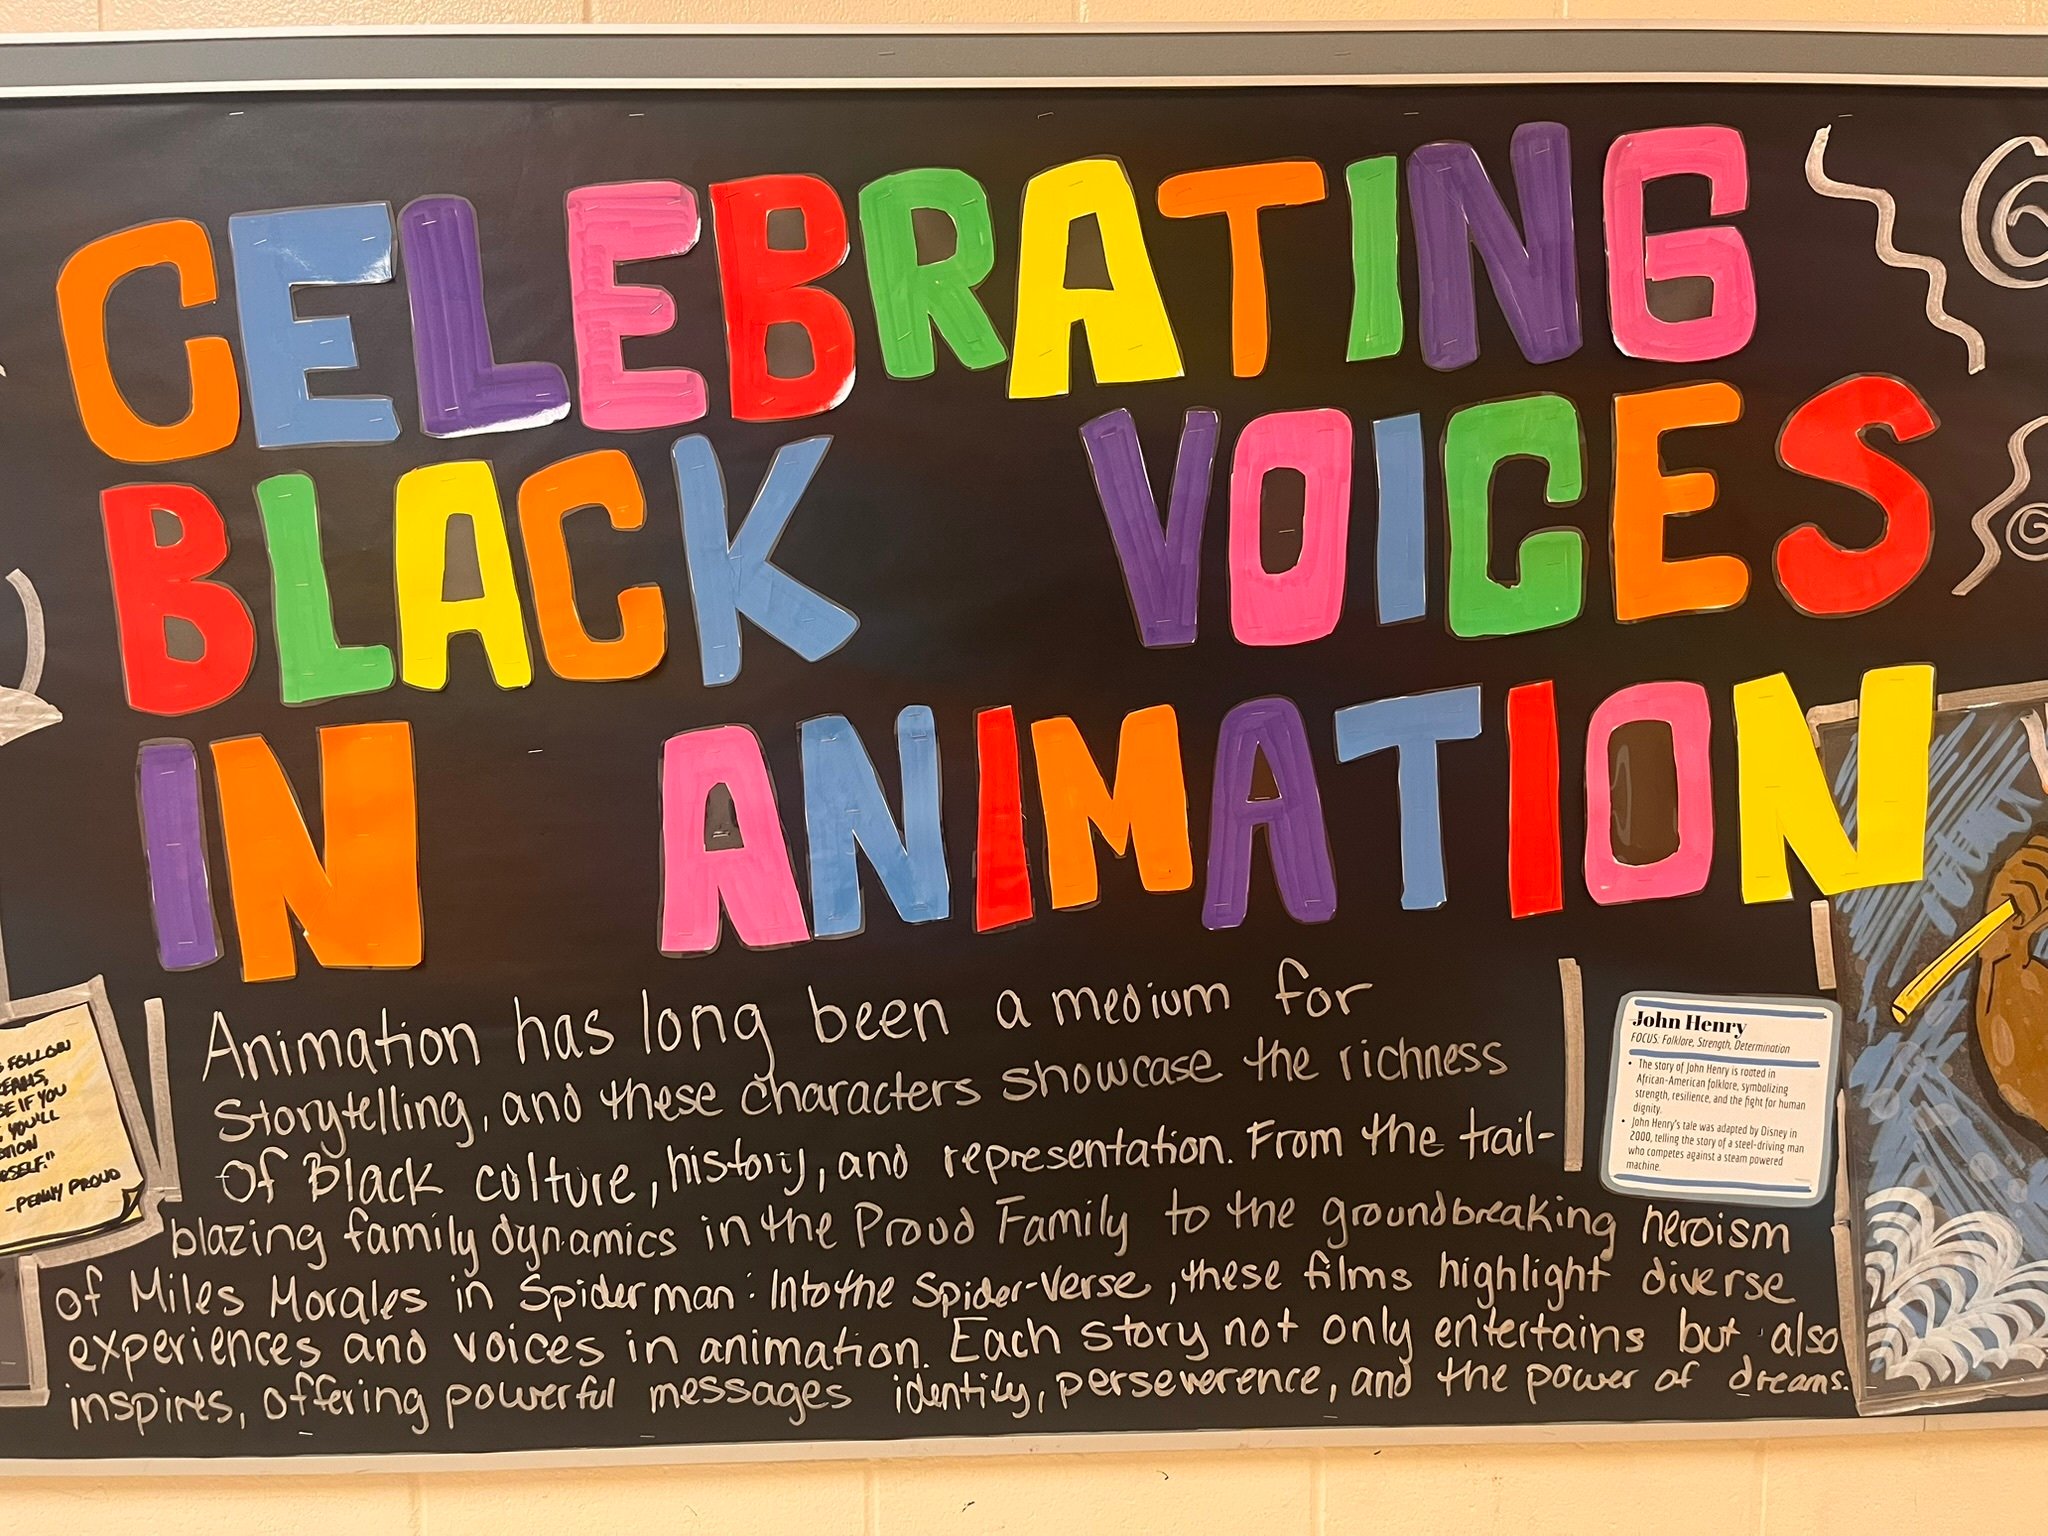 CELEBRATING
BLACK VOICES
IN ANIMATION
Animation has long been a medium for
Storytelling, and these characters showcase the richness
of Black culture, history, and representation. From the trail-
blazing family dynamics in the Proud Family to the groundbreaking heroism
of Miles Morales in Spiderman: Into the Spider-Verse, these films highlight diverse
experiences and voices in animation. Each story not only entertains but also
inspires, offering powerful messages identity, perseverence, and the power of dreams.
FOLLOW
IF YOU
YOU'LL
-PENNY PROUD
John Henry
FOCUS: Folklore, Strength, Determination
• The story of John Henry is rooted in
African-American folklore, symbolizing
strength, resilience, and the fight for human
dignity.
• John Henry's tale was adapted by Disney in
2000, telling the story of a steel-driving man
who competes against a steam powered
machine.